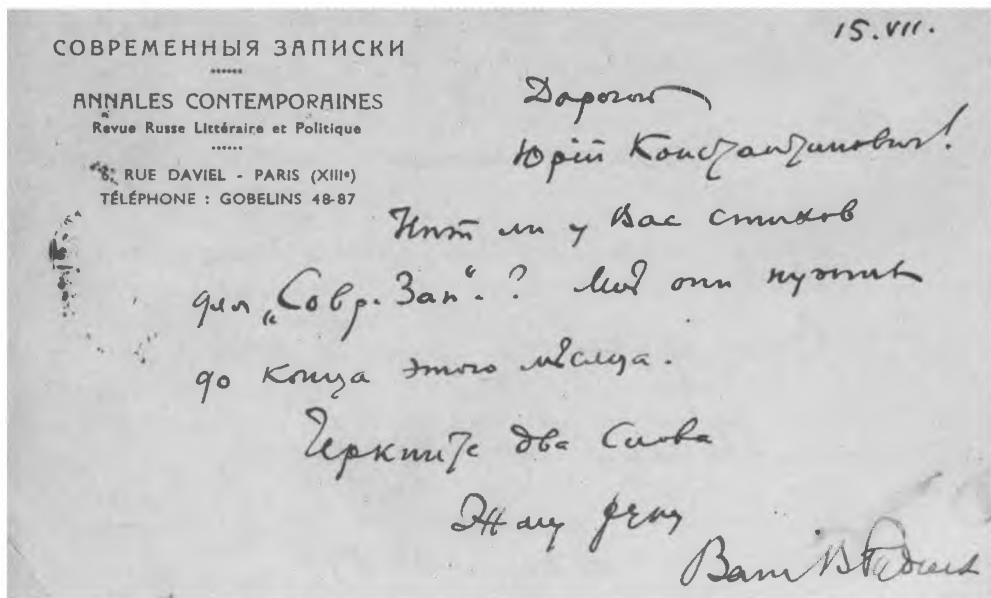 15.VII.
СОВРЕМЕННЫЯ ЗАПИСКИ
ANNALES CONTEMPORAINES
Revue Russe Littéraire et Politique
6, RUE DAVIEL - PARIS (XIIIe)
TÉLÉPHONE : GOBELINS 48-87
Дорогой
Юрій Константинович!
Нѣт ли у Вас стихов
для „Совр. Зап“.? Мнѣ они нужны
до конца этого мѣсяца.
Черкните два слова
Жму руку
Ваш В.